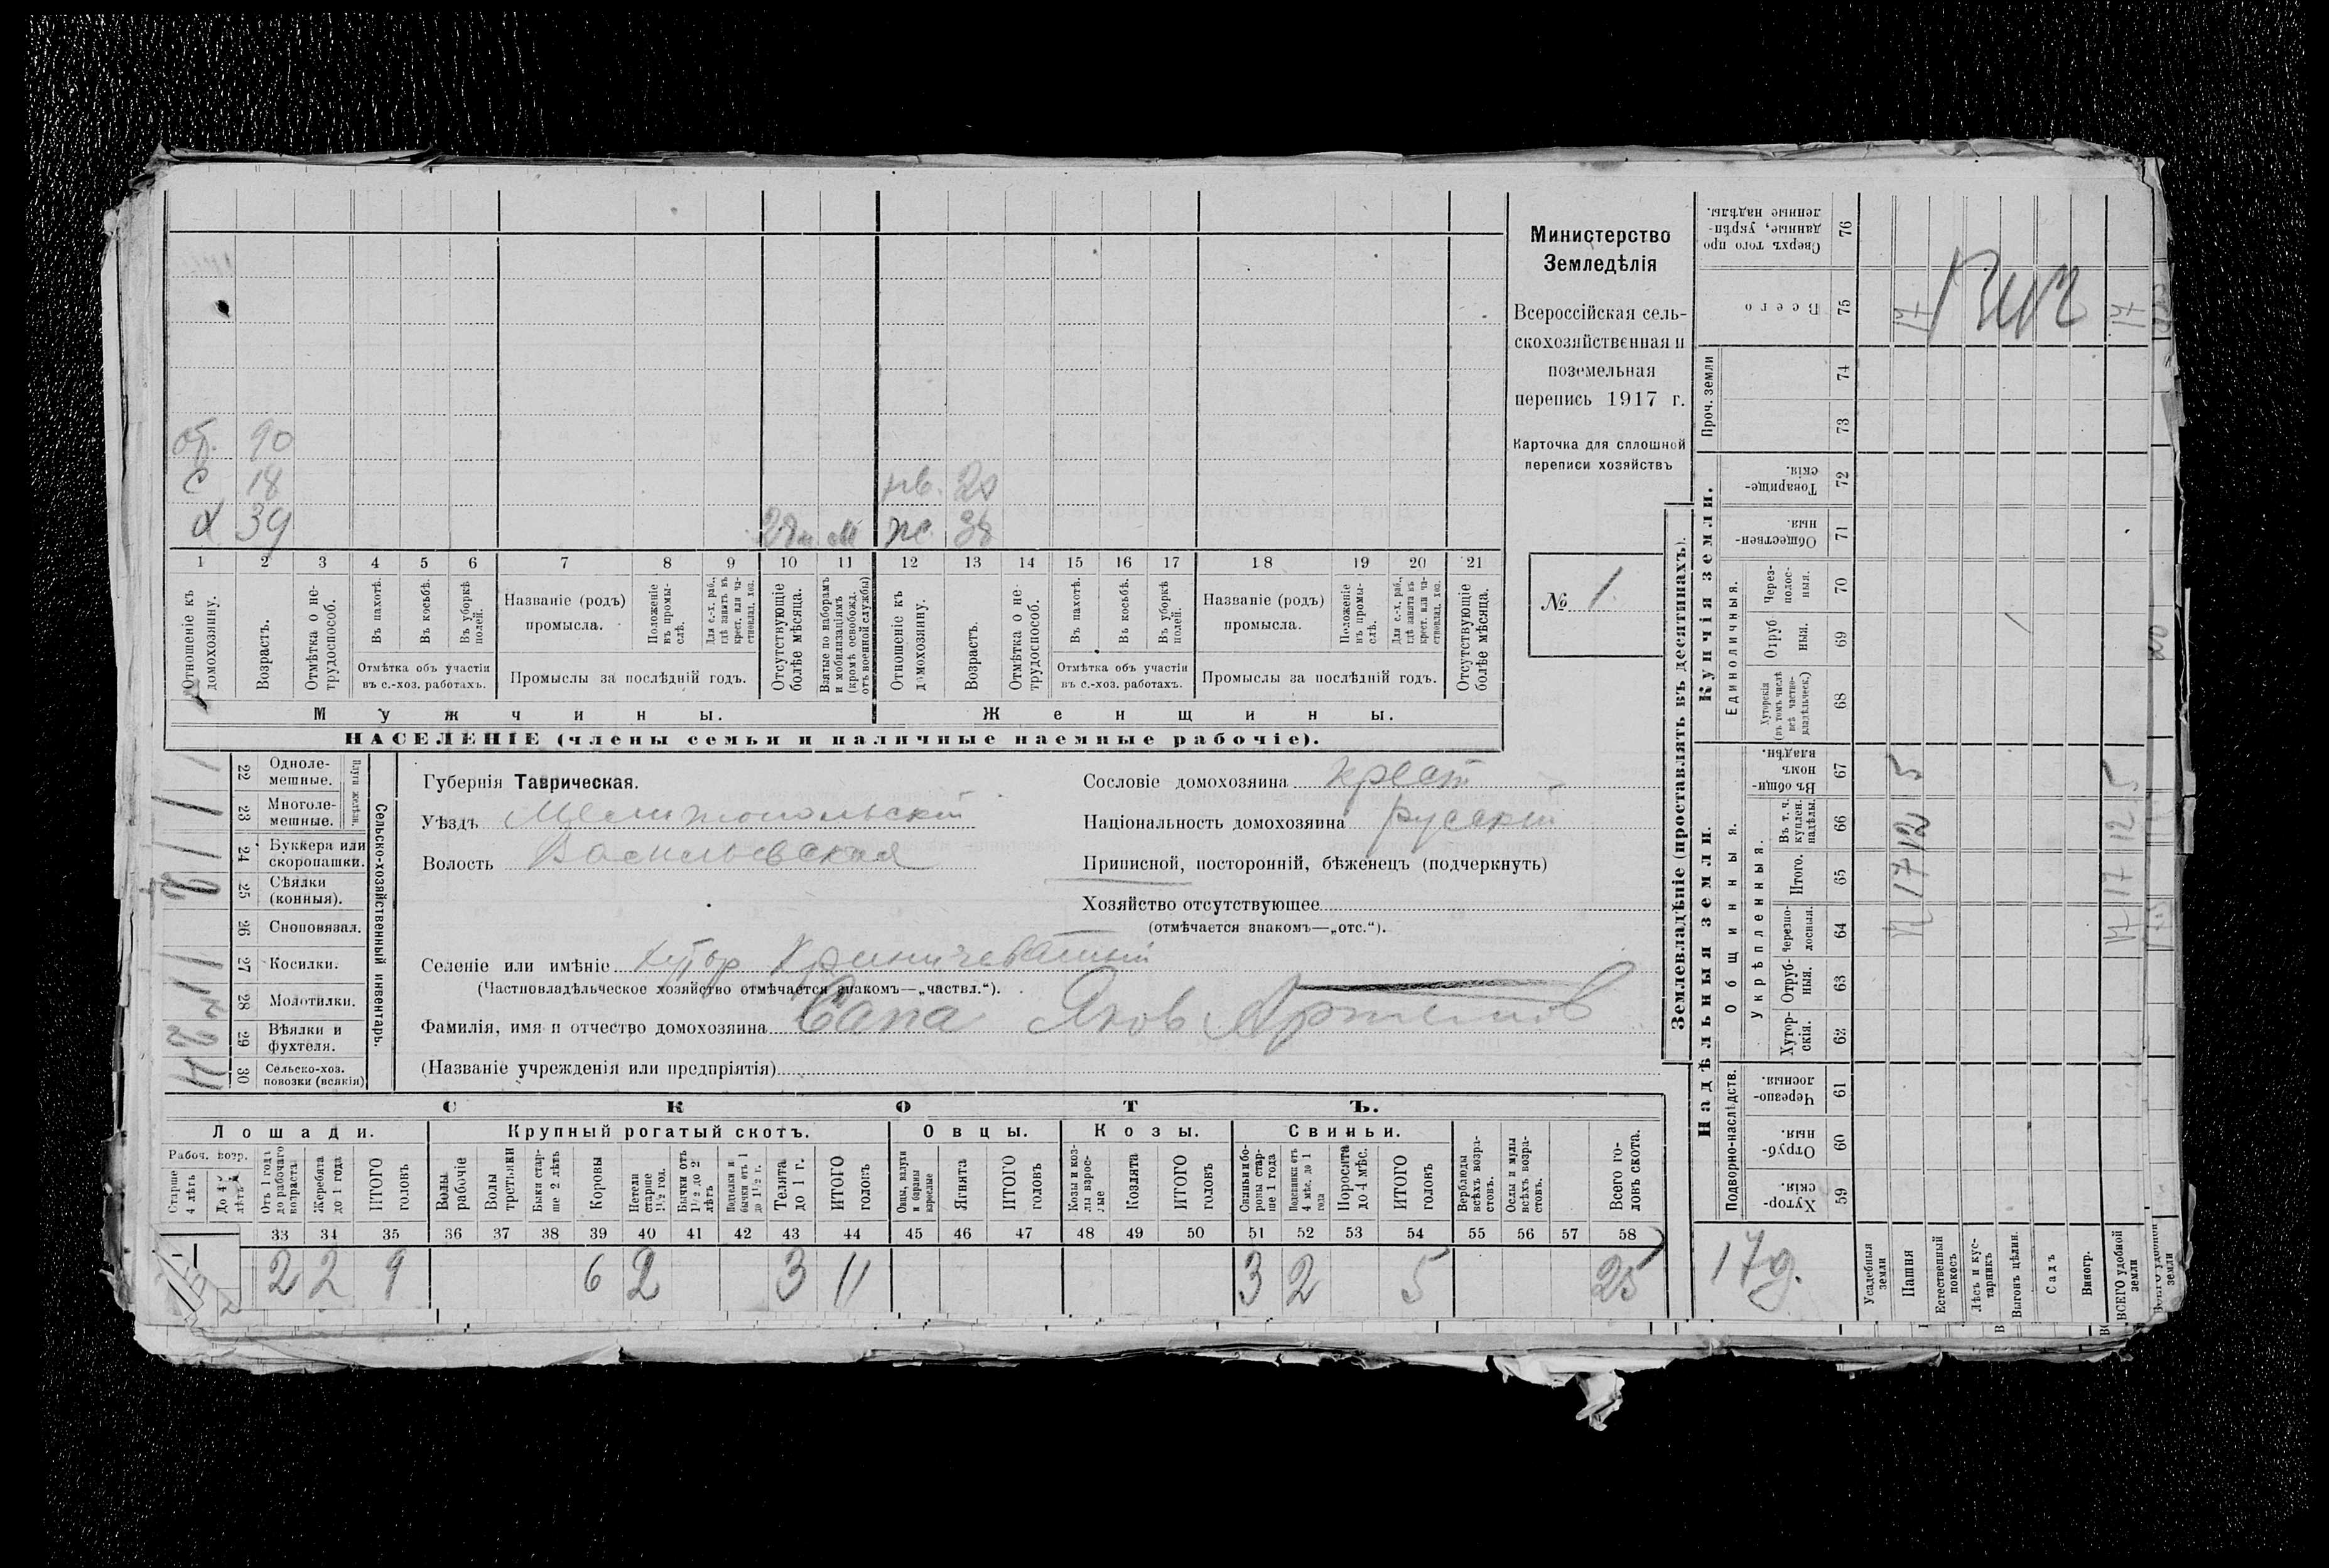 от. 90
с 18
д 39
28 м
рв. 20
ж. 38
1 2 3 4 5 6 7 8 9 10 11 12 13 14 15 16 17 18 19 20 21
Отношеніе къ домохозяину.
Возрастъ.
Отмѣтка о не-трудоспособ.
Въ пахотѣ.
Въ косьбѣ.
Въ уборкѣ полей.
Отмѣтка объ участіи въ с.-хоз. работахъ.
Названіе (родъ) промысла.
Положеніе въ промы-слѣ.
Для с.-х. раб., гдѣ занятъ въ крест. или ча-стновлад. хоз.
Промыслы за послѣдній годъ.
Отсутствующіе болѣе мѣсяца.
Взятые по наборамъ и мобилизаціямъ (кромѣ освобожд. отъ военной службы)
Отношеніе къ домохозяину.
Возрастъ.
Отмѣтка о не-трудоспособ.
Въ пахотѣ.
Въ косьбѣ.
Въ уборкѣ полей.
Отмѣтка объ участіи въ с.-хоз. работахъ.
Названіе (родъ) промысла.
Положеніе въ промы-слѣ.
Для с.-х. раб., гдѣ занята въ крест. или ча-стновлад. хоз.
Промыслы за послѣдній годъ.
Отсутствующіе болѣе мѣсяца.
Мужчины.
Женщины.
НАСЕЛЕНІЕ (члены семьи и наличные наемные рабочіе).
Министерство
Земледѣлія
Всероссійская сель-
скохозяйственная и
поземельная
перепись 1917 г.
Карточка для сплошной
переписи хозяйствъ
№ 1.
22 Одноле-мешные.
23 Многоле-мешные.
Плуги желѣзн.
24 Буккера или скоропашки.
25 Сѣялки (конныя).
26 Сноповязал.
27 Косилки.
28 Молотилки.
29 Вѣялки и фухтеля.
30 Сельско-хоз. повозки (всякія)
Сельско-хозяйственный инвентарь.
Губернія Таврическая.
Уѣздъ Мелитопольскій
Волость Васильевская
Сословіе домохозяина крест
Національность домохозяина русскій
Приписной, посторонній, бѣженецъ (подчеркнуть)
Хозяйство отсутствующее
(отмѣчается знакомъ—„отс.“).
Селеніе или имѣніе хутор Криничеватый
(Частновладѣльческое хозяйство отмѣчается знакомъ—„частвл.“).
Фамилія, имя и отчество домохозяина Сапа Яков Артемов
(Названіе учрежденія или предпріятія)
СКОТЪ.
Лошади.
Крупный рогатый скотъ.
Овцы.
Козы.
Свиньи.
Рабоч. возр.
Старше 4 лѣтъ
До 4 лѣтъ
Отъ 1 года до рабочаго возраста
Жеребята до 1 года
ИТОГО головъ
Волы рабочіе
Волы третьяки
Быки стар-ше 2 лѣтъ
Коровы
Нетели старше 1½ год.
Бычки отъ 1½ до 2 лѣтъ
Подтелки и бычки отъ 1 до 1½ г.
Телята до 1 г.
ИТОГО головъ
Овцы, валухи и бараны взрослые
Ягнята
ИТОГО головъ
Козы и коз-лы взрос-лые
Козлята
ИТОГО головъ
Свиньи и бо-ровы стар-ше 1 года
Подсвинки отъ 4 мѣс. до 1 года
Поросята до 4 мѣс.
ИТОГО головъ
Верблюды всѣхъ возра-стовъ.
Ослы и мулы всѣхъ возра-стовъ.
Всего го-ловъ скота.
33 34 35 36 37 38 39 40 41 42 43 44 45 46 47 48 49 50 51 52 53 54 55 56 57 58
2 2 9 6 2 3 11 3 2 5 25
Землевладѣніе (проставлять въ десятинахъ).
Надѣльныя земли.
Купчія земли.
Проч. земли
Сверхъ того про-данные, укрѣп-ленные надѣлы. 76
Всего 75
74
73
Товарище-скія. 72
Обществен-ныя. 71
Единоличныя.
Через-полос-ныя. 70
Отруб-ныя. 69
Хуторскія (въ томъ числѣ всѣ частно-владѣльческ.) 68
Общинныя.
Въ общи-номъ владѣн. 67
Укрѣпленныя.
Въ т. ч. куплен. надѣлы. 66
Итого. 65
Черезпо-лосныя. 64
Отруб-ныя. 63
Хутор-скія. 62
Подворно-наслѣдств.
Черезпо-лосныя. 61
Отруб-ныя. 60
Хутор-скія. 59
17 17
5 5
12 12
17 17
17 17
17д.
Усадебныя земли
Пашня
Естественный покосъ
Лѣсъ и кус-тарникъ
Выгонъ цѣлин.
Садъ
Виногр.
ВСЕГО удобной земли